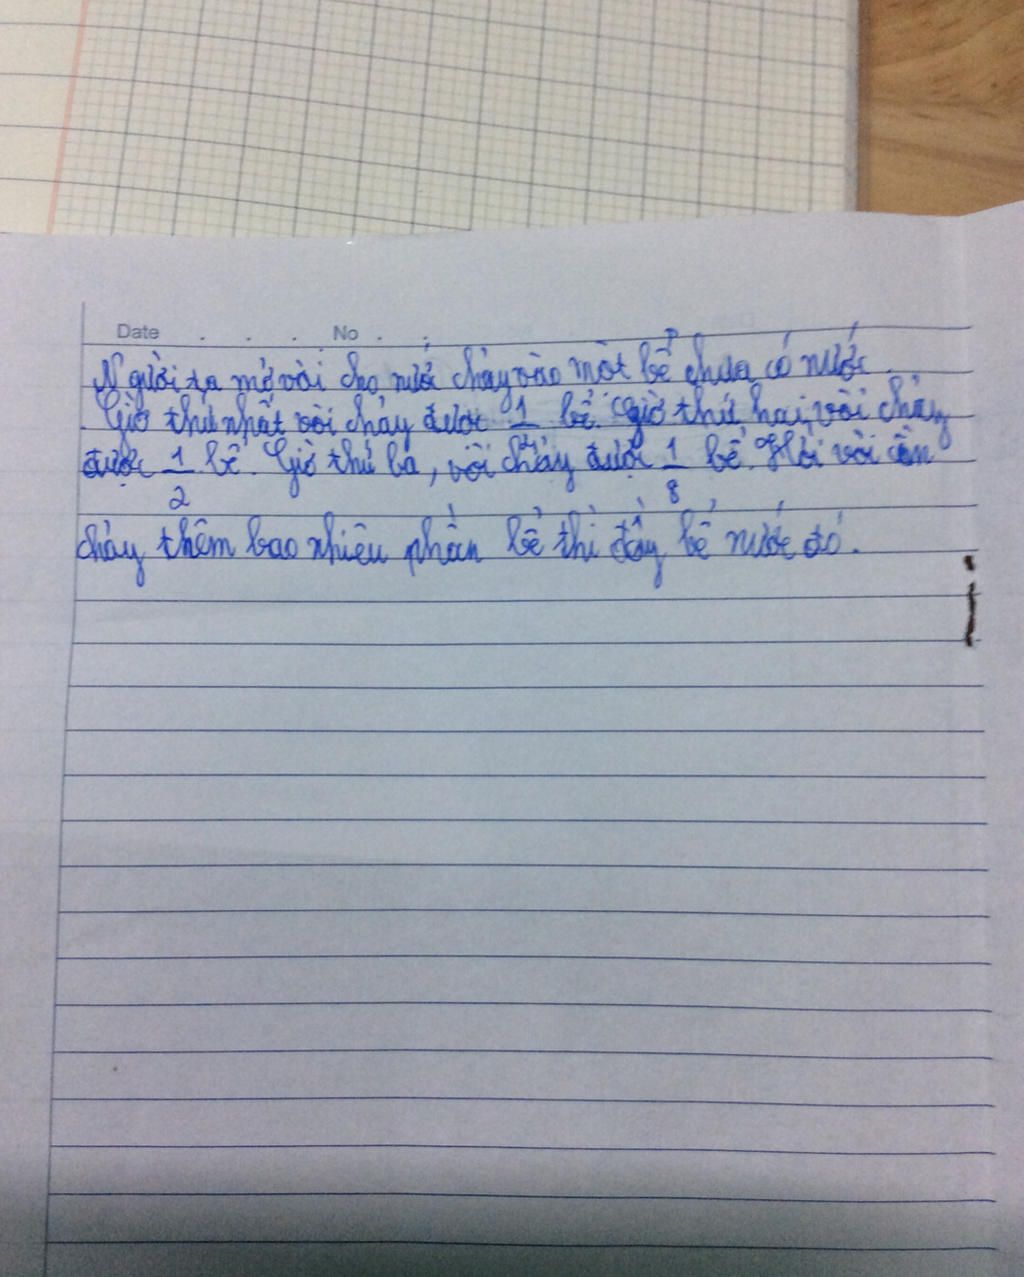 Date . . . No . . .
Người ta mở vòi cho nước chảy vào một bể chưa có nước.
Giờ thứ nhất vòi chảy được 1/4 bể. Giờ thứ hai, vòi chảy
được 1/2 bể. Giờ thứ ba, vòi chảy được 1/8 bể. Hỏi vòi cần
chảy thêm bao nhiêu phần bể thì đầy bể nước đó.